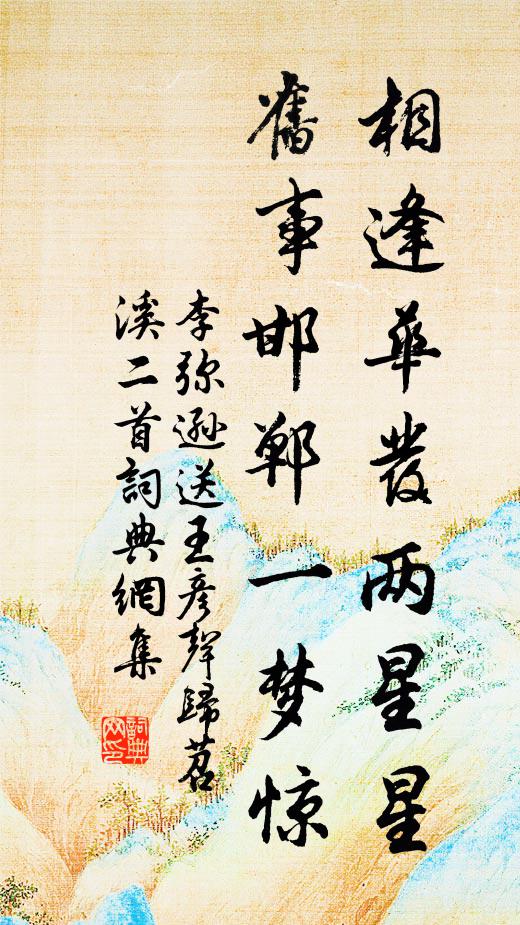 相逢華发两星星
舊事邯郸一梦惊
李弥遜送王彦聲歸苕
溪二首詞典網集
詞典
网印